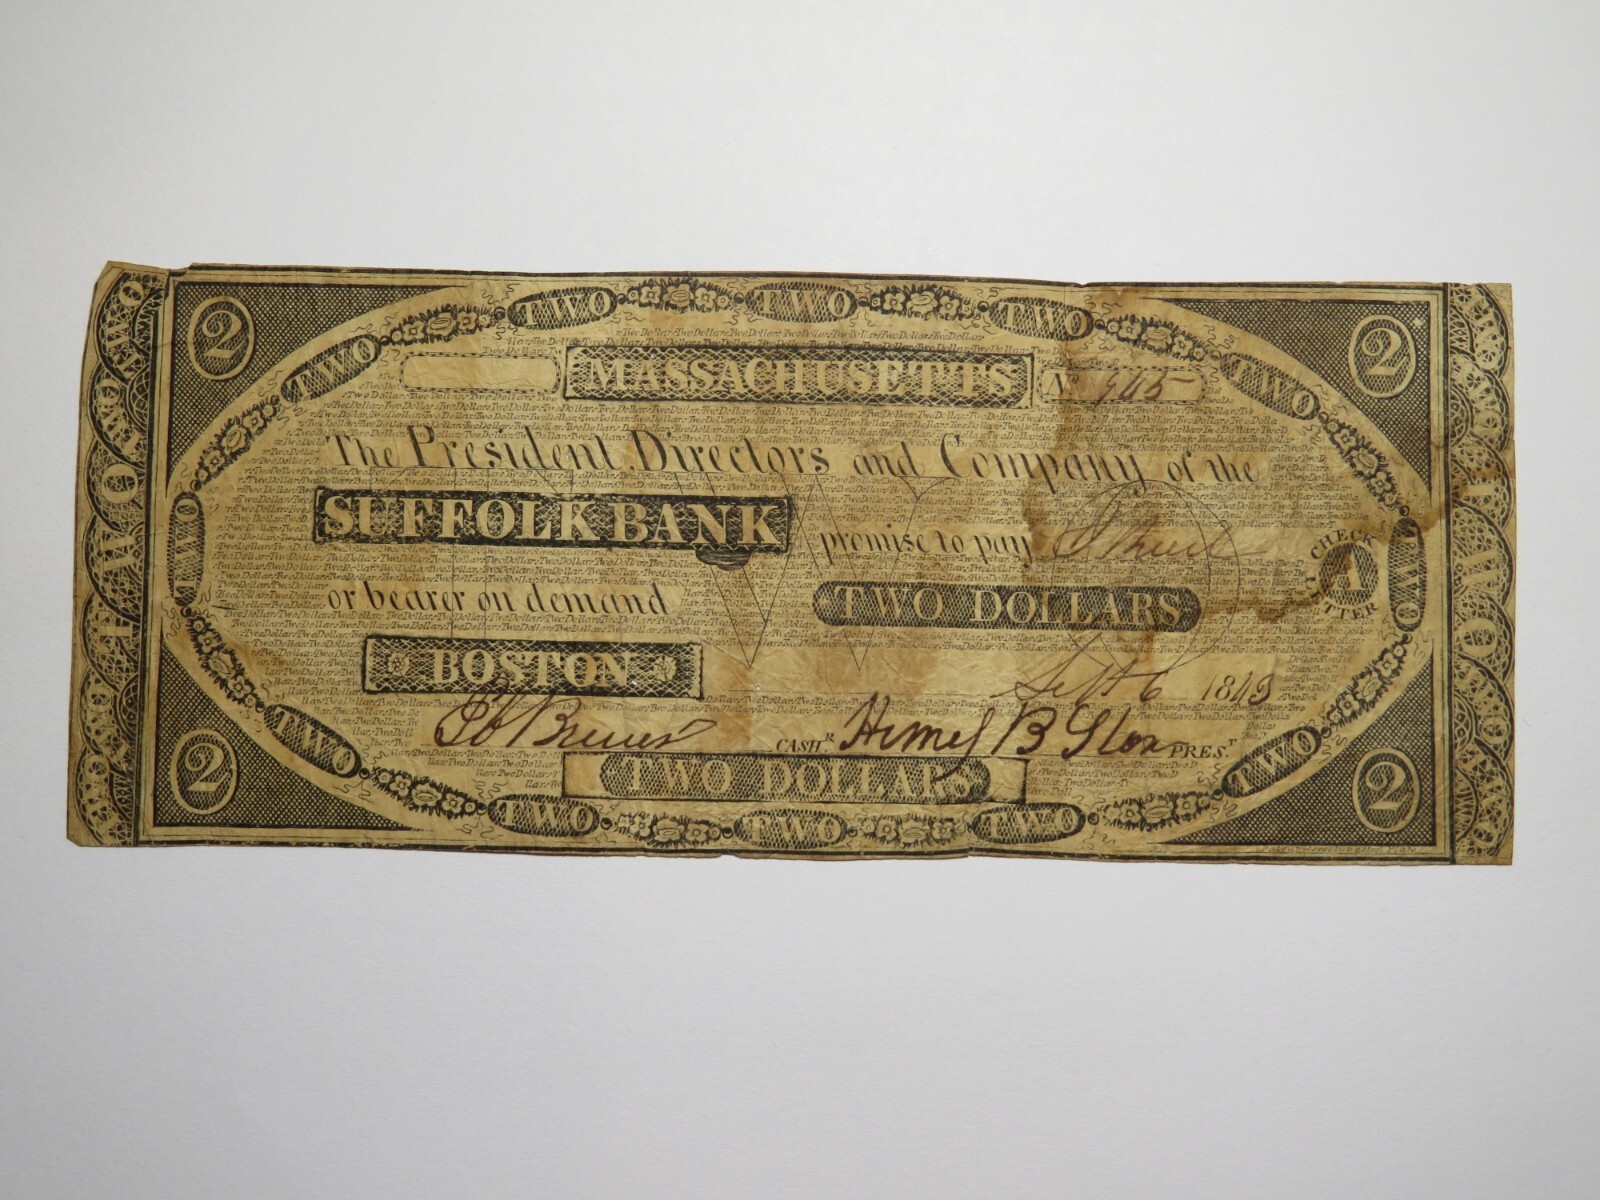 2 TWO TWO TWO TWO TWO 2
MASSACHUSETTS
No 945
The President Directors and Company of the
SUFFOLK BANK promise to pay
or bearer on demand TWO DOLLARS
CHECK A LETTER
TWO TWO
BOSTON Sept 6 1843
CASH.R Henry B Stone PRES.T
TWO DOLLARS
2 TWO TWO TWO TWO TWO 2